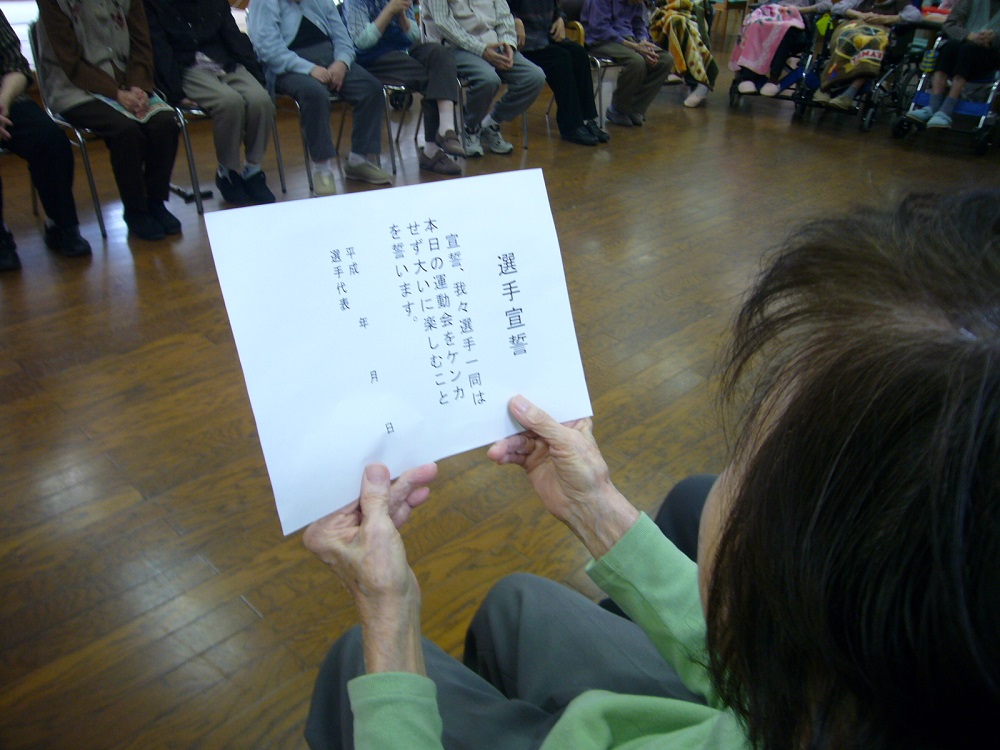 選手宣誓
宣誓、我々選手一同は
本日の運動会をケンカ
せず大いに楽しむこと
を誓います。
平成 年 月 日
選手代表